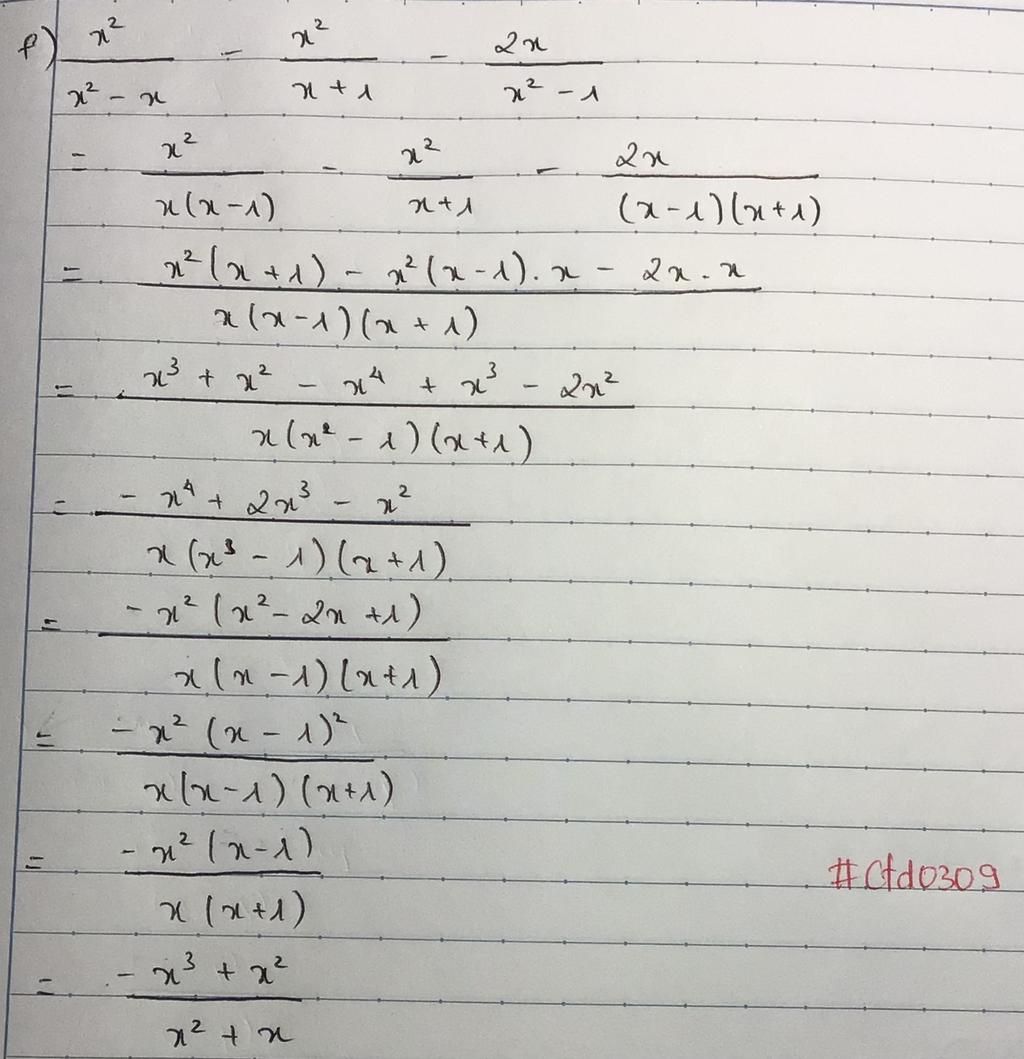 f) x²/(x² - x) - x²/(x + 1) - 2x/(x² - 1)
= x²/(x(x-1)) - x²/(x+1) - 2x/((x-1)(x+1))
= (x²(x+1) - x²(x-1).x - 2x.x)/(x(x-1)(x+1))
= (x³ + x² - x⁴ + x³ - 2x²)/(x(x² - 1)(x+1))
= (-x⁴ + 2x³ - x²)/(x(x³ - 1)(x+1))
= (-x²(x² - 2x + 1))/(x(x-1)(x+1))
= (-x²(x-1)²)/(x(x-1)(x+1))
= (-x²(x-1))/(x(x+1))
#Cfd0309
= (-x³ + x²)/(x² + x)